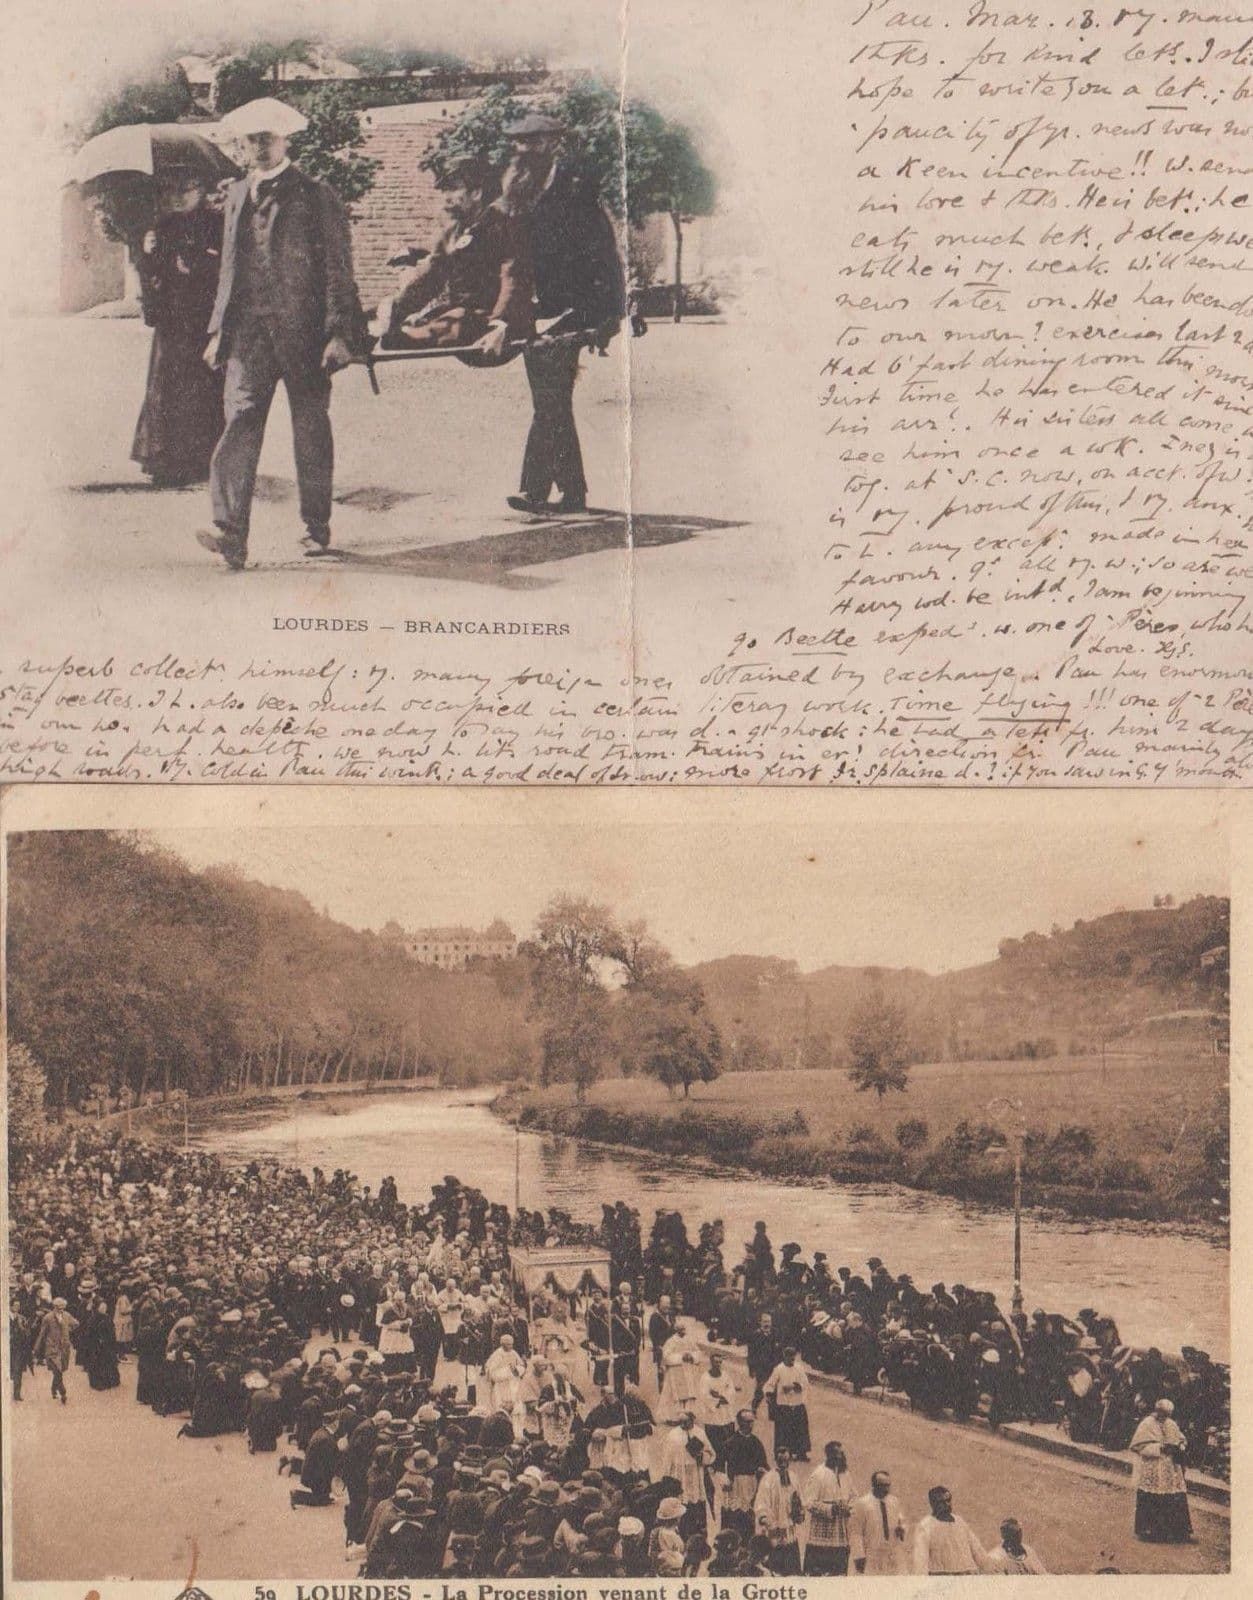 Pau. Mar. 13. vy. many
thks. for kind let. I still
hope to write you a let.; but
paucity of yr. news was not
a keen incentive!! W. sends
his love & thks. He is bet.; he
eats much bet., & sleeps well
still he is vy. weak. Will send
news later on. He has been
to our morn? exercises last 2
Had b'fast dining room this morn
First time he has entered it since
his arr!. His sisters all come
see him once a wk. Inez is
tog. at S.C. now, on acct. of W.
is vy. proud of this, & vy. anx.
to h. any excep? made in her
favour. all vy. w.; so are we
Harry wd. be int'd, I am beginning
go Beetle exped?. w. one of Pères, who
Love.
LOURDES — BRANCARDIERS
superb collect? himself: vy. many foreign ones obtained by exchange. Pau has enormous
stag beetles. I h. also been much occupied in certain literary work. Time flying!!! one of 2 Pères
in our ho. had a depêche one day to say his bro. was d. shock: he had a let. fr. him 2 days
before in perf. health. We now h. road tram. trains in direction fr. Pau mainly
high roads. Vy. cold in Pau this wint.; a good deal of snow: more frost if you saw in
59 LOURDES - La Procession venant de la Grotte